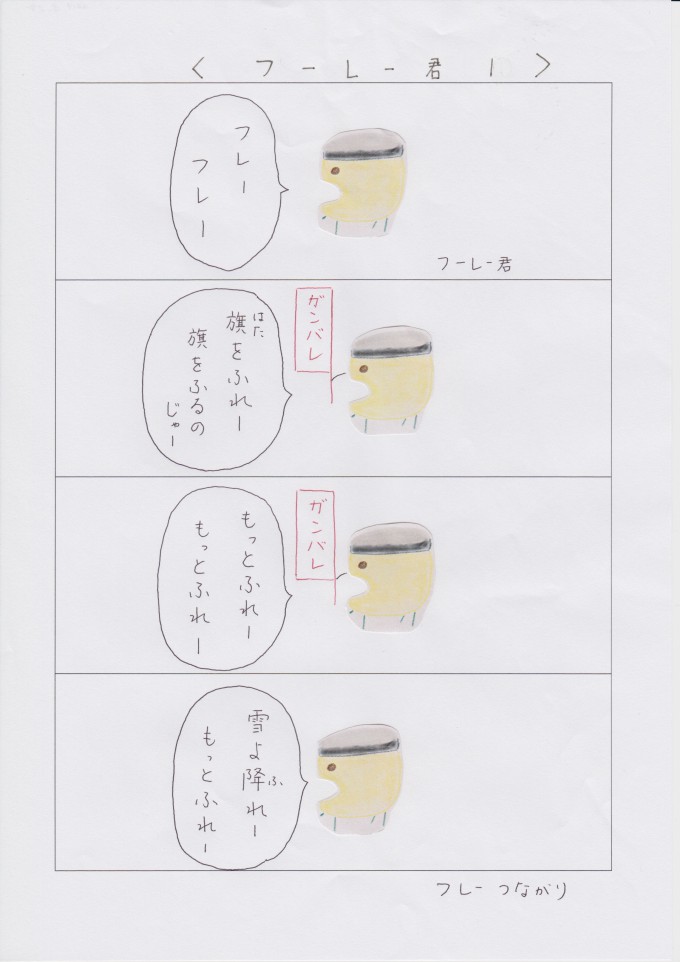 < フーレー君 1 >
フレー
フレー
フーレー君
ガンバレ
旗をふれー
はた
旗をふるの
じゃー
ガンバレ
もっとふれー
もっとふれー
雪よ降れー
ふ
もっとふれー
フレーつながり